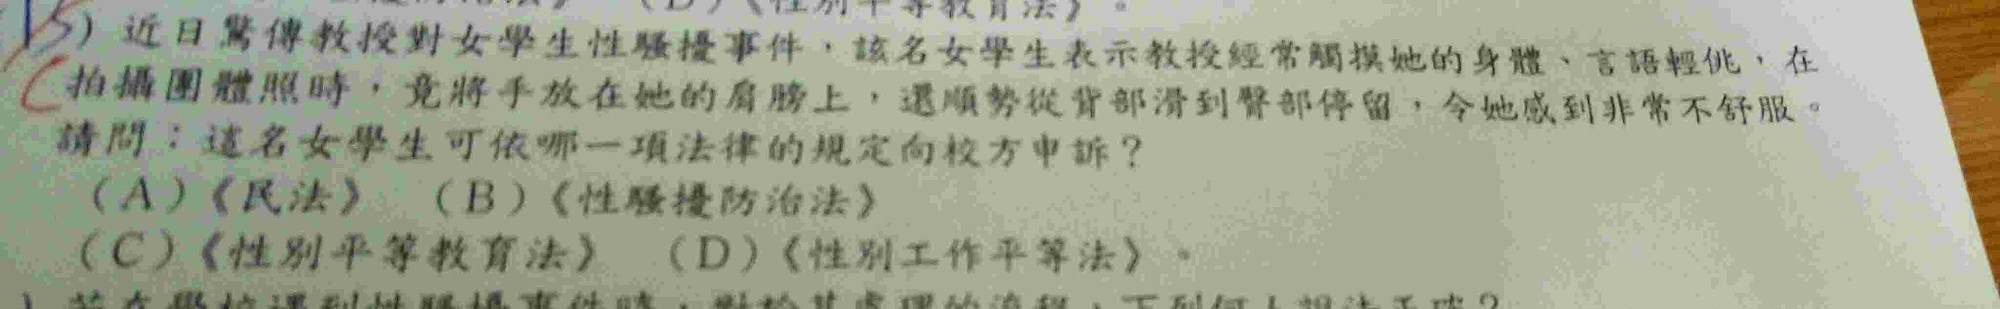 （D）《性別平等教育法》。
B）近日驚傳教授對女學生性騷擾事件，該名女學生表示教授經常觸摸她的身體、言語輕佻，在
C 拍攝團體照時，竟將手放在她的肩膀上，還順勢從背部滑到臀部停留，令她感到非常不舒服。
請問：這名女學生可依哪一項法律的規定向校方申訴？
（A）《民法》 （B）《性騷擾防治法》
（C）《性別平等教育法》 （D）《性別工作平等法》。